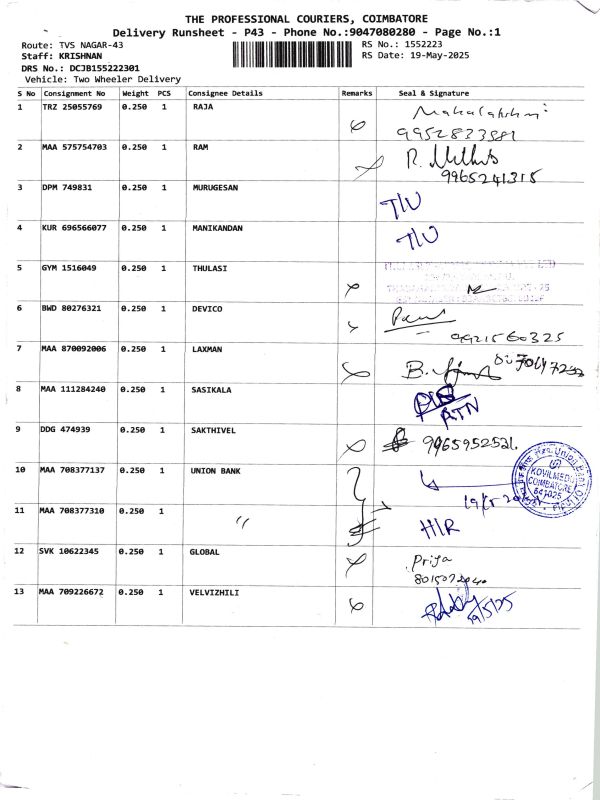 THE PROFESSIONAL COURIERS, COIMBATORE
Delivery Runsheet - P43 - Phone No.:9047080280 - Page No.:1
Route: TVS NAGAR-43 RS No.: 1552223
Staff: KRISHNAN RS Date: 19-May-2025
DRS No.: DCJB155222301
Vehicle: Two Wheeler Delivery
S No Consignment No Weight PCS Consignee Details Remarks Seal & Signature
1 TRZ 25055769 0.250 1 RAJA Mahalakshmi
9952833981
2 MAA 575754703 0.250 1 RAM R.
9965241315
3 DPM 749831 0.250 1 MURUGESAN T/U
4 KUR 696566077 0.250 1 MANIKANDAN T/U
5 GYM 1516049 0.250 1 THULASI
6 BWD 80276321 0.250 1 DEVICO
9921560325
7 MAA 870092006 0.250 1 LAXMAN B.
8 MAA 111284240 0.250 1 SASIKALA
RTN
9 DDG 474939 0.250 1 SAKTHIVEL 9965952521.
10 MAA 708377137 0.250 1 UNION BANK
KOVILMEDU
COIMBATORE
641025
11 MAA 708377310 0.250 1 " H/R
12 SVK 10622345 0.250 1 GLOBAL Priya
8015072040
13 MAA 709226672 0.250 1 VELVIZHILI
19/5/25